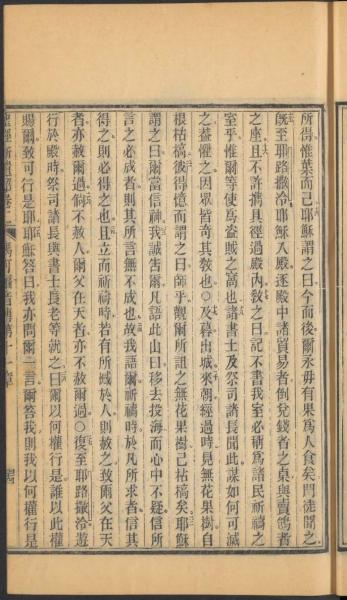 所得惟葉而已耶穌謂之曰今而後爾永毋有果爲人食矣門徒聞之
旣至耶路撒冷耶穌入殿逐殿中諸貿易者倒兌錢者之桌與賣鴿者
之座且不許攜具徑過殿內敎之曰記不書我室必稱爲諸民祈禱之
室乎惟爾等使爲盜賊之窩也諸書士及祭司諸長聞此謀如何可滅
之蓋懼之因眾皆奇其敎也○及暮出城來朝經過時見無花果樹自
根枯槁彼得憶而謂之曰師乎觀爾所詛之無花果樹已枯槁矣耶穌
謂之曰爾當信神我誠吿爾凡語此山曰移去投海而心中不疑信所
言之必成者則其所言無不成也故我語爾祈禱時於凡所求者信其
得之則必得之也且立而祈禱時若有所憾於人則赦之致爾父在天
者亦赦爾過倘不赦人爾父在天者亦不赦爾過○復至耶路撒冷遊
行於殿時祭司諸長與書士長老等就之曰爾以何權行是誰以此權
賜爾致可行是耶耶穌答曰我亦問爾一言爾答我則我以何權行是